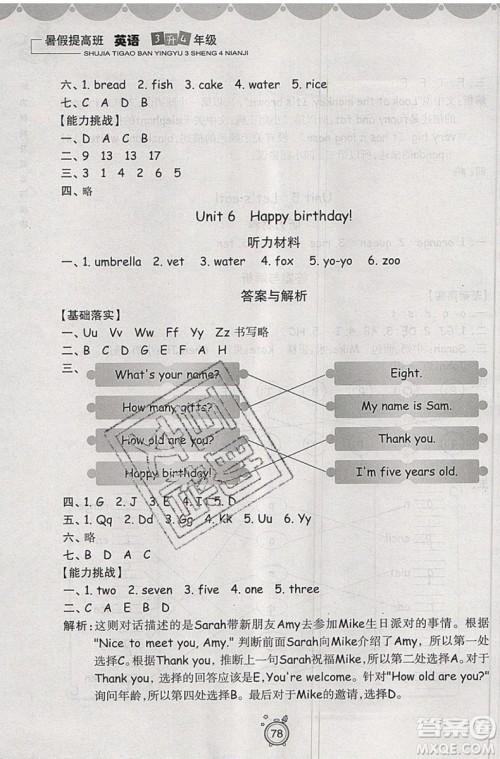 暑假提高班 英语 3升4年级
SHUJIA TIGAO BAN YINGYU 3 SHENG 4 NIANJI
六. 1. bread 2. fish 3. cake 4. water 5. rice
七. C A D
【能力挑战】
一. D A C B
二. 9 13 13 17
三. 3 1 4 2 5
四. 略
Unit 6 Happy birthday!
听力材料
一. 1. umbrella 2. vet 3. water 4. fox 5. yo-yo 6. zoo
答案与解析
【基础落实】
一. Uu Vv Ww Xx Yy Zz 书写略
二. B D A C
三.
What's your name? Eight.
How many gifts? My name is Sam.
How old are you? Thank you.
Happy birthday! I'm five years old.
四. 1. G 2. J 3. E 4. I 5. D
五. 1. Qq 2. Dd 3. Gg 4. Kk 5. Uu 6. Yy
六. 略
七. B D A C
【能力挑战】
一. 1. two 2. seven 3. five 4. one 5. three
二. B C A E D
解析: 这则对话描述的是Sarah带新朋友Amy去Mike生日派对的事情。根据
"Nice to meet you, Amy." 判断前面Sarah向Mike介绍了Amy, 所以第一处选
择B。根据Thank you, 推断上一句Sarah祝福Mike, 所以第二处选择C。Thank
you. 选择的回答应该是E, You are welcome. 所以第四处选择E。"How old are you?"
询问年龄, 所以第三处选择A。最后Amy接受了Mike的邀请, 选择了D。
78
答案圈
MXQE.COM